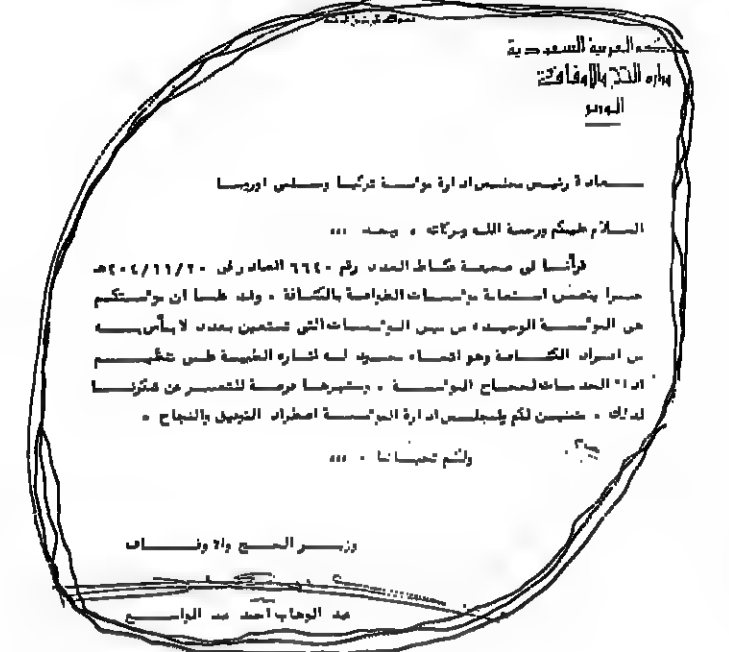 العربية السعودية
وزارة الحج والأوقاف
الوزير
سعادة رئيس مجلس ادارة مؤسسة تركيا ومسلمي اوربا
السلام عليكم ورحمة الله وبركاته ، وبعد ،،،
قرأنا في صحيفة عكاظ العدد رقم ٦٦٤٠ الصادر في
خبرا يتضمن استعانة مؤسسات الطوافة بالكشافة ، وقد علمنا ان مؤسستكم
هي المؤسسة الوحيدة من بين المؤسسات التي تستعين بعدد لا بأس به
من افراد الكشافة وهو اتجاه حميد له اثاره الطيبة على تنظيم
اداء الخدمات لحجاج المؤسسة ، ونعتبرها فرصة للتعبير عن شكرنا
لذلك ، متمنين لكم ولمجلس ادارة المؤسسة اطراد التوفيق والنجاح ،
ولكم تحياتنا ، ،،،
وزير الحج والاوقاف
عبد الوهاب احمد عبد الواسع